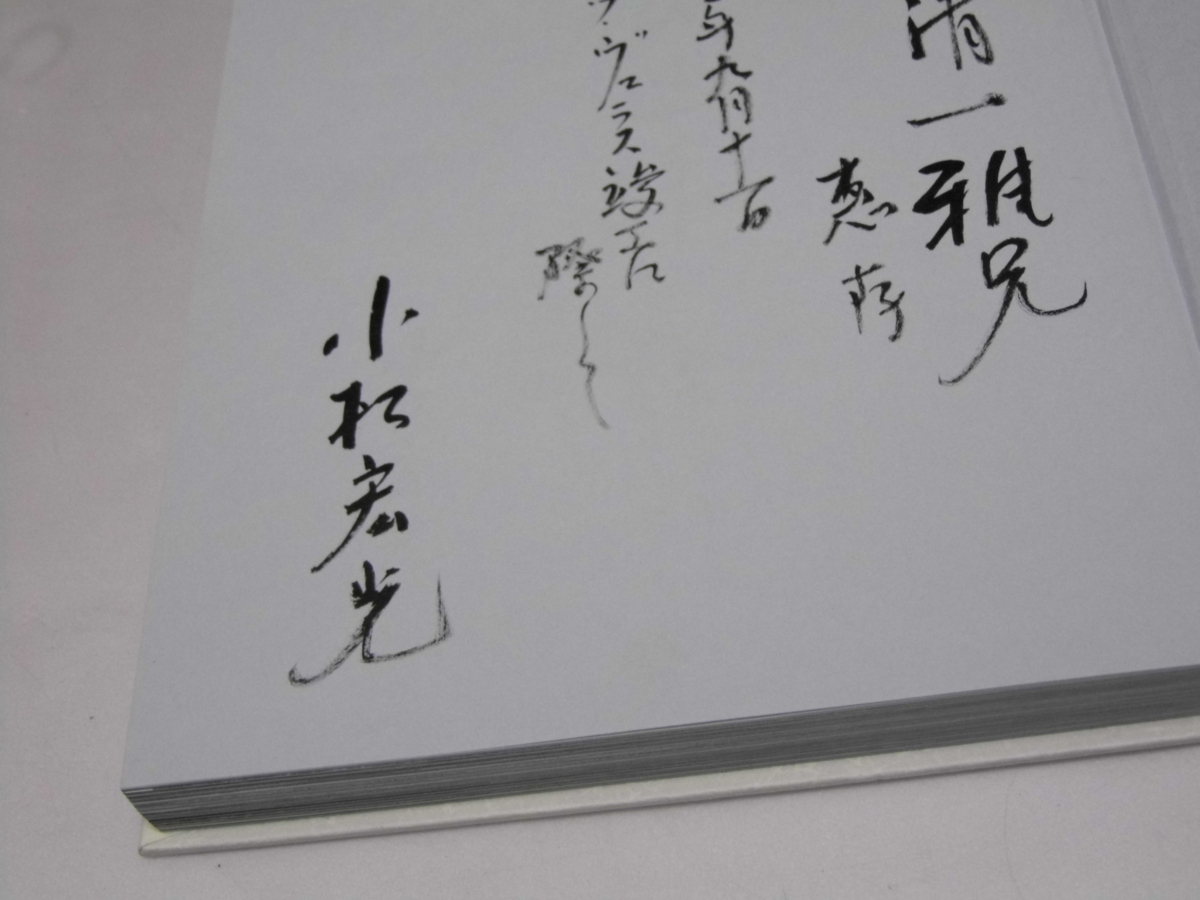 清一雅兄
恵存
年九月十一日
ヴェラス竣工に
際して
小松宏光